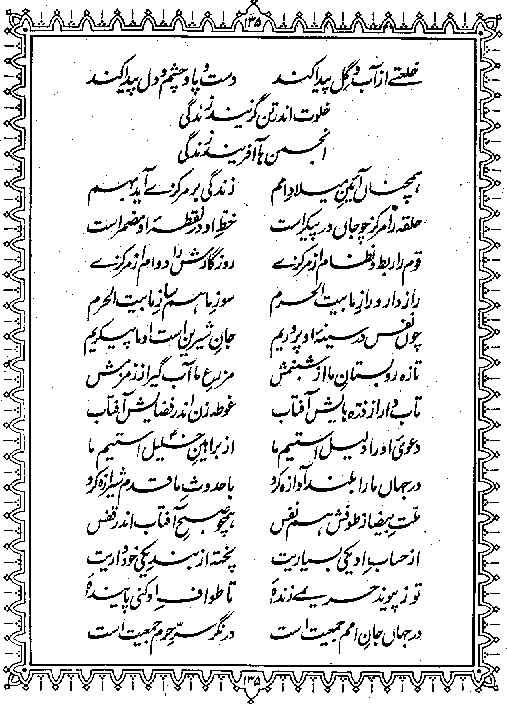 ۱۳۵
خلعتے از آب و گل پیدا کند دست و پا و چشم و دل پیدا کند
خلوت اندر تن گزیند زندگی
انجمن ها آفریند زندگی
ہمچناں آئین میلاد امم زندگی بر مرکزے آید بہم
حلقہ را مرکز چو جاں در پیکر است خط او در نقطۂ او مضمر است
قوم را ربط و نظام از مرکزے روزگارش را دوام از مرکزے
راز دار و راز ما بیت الحرم سوز ما ہم ساز ما بیت الحرم
چوں نفس در سینۂ او پروریم جان شیرین است او ما پیکریم
تازہ رو بستان ما از شبنمش مزرع ما آب گیر از زمزمش
تاب دار از ذرہ ہایش آفتاب غوطہ زن اندر فضایش آفتاب
دعویٔ او را دلیل استیم ما از براہین خلیلؑ استیم ما
در جہاں ما را بلند آوازہ کرد با حدوث ما قدم شیرازہ کرد
ملت بیضا ز طوفش ہم نفس ہمچو صبح آفتاب اندر قفس
از حساب او یکی بسیاریت پختہ از بند یکی خودداریت
تو ز پیوند حریمے زندۂ تا طواف او کنی پایندۂ
در جہاں جان امم جمعیت است در نگر سر حرم جمعیت است
۱۳۵